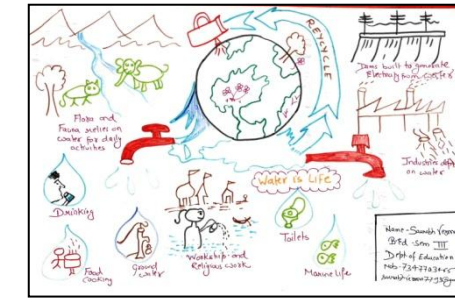 RECYCLE
Dams built to generate
Electricity from water
Flora and
Fauna relies on
water for daily
activities
Industries
on water
Water is Life
Drinking
Food
Cooking
Ground
water
Workship and
Religious work
Toilets
Marine life
Name - Saurabh
B.Ed - Sem III
Dept of Education